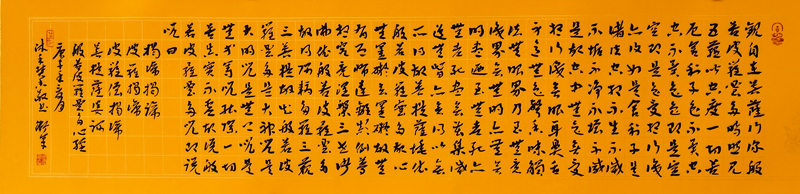 觀自在菩薩行深般
若波羅蜜多時照見
五蘊皆空度一切苦
厄舍利子色不異空
空不異色色即是空
空即是色受想行識
亦復如是舍利子是
諸法空相不生不滅
不垢不淨不增不減
是故空中無色無受
想行識無眼耳鼻舌
身意無色聲香味觸
法無眼界乃至無意
識界無無明亦無無
明盡乃至無老死亦
無老死盡無苦集滅
道無智亦無得以無
所得故菩提薩埵依
般若波羅蜜多故心
無罣礙無罣礙故無
有恐怖遠離顛倒夢
想究竟涅槃三世諸
佛依般若波羅蜜多
故得阿耨多羅三藐
三菩提故知般若波
羅蜜多是大神咒是
大明咒是無上咒是
無等等咒能除一切
苦真實不虛故說般
若波羅蜜多咒即說
咒曰
揭諦揭諦
波羅揭諦
波羅僧揭諦
菩提薩婆訶
般若波羅蜜多心經
庚子年月